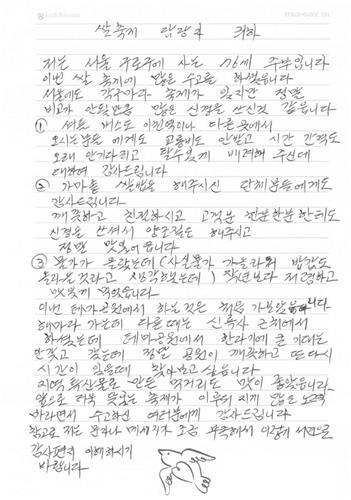 쌀축제 담당자 귀하
저는 서울 구로구에 사는 76세 주부입니다
이번 쌀 축제에 많은 수고를 하셨습니다
서울에도 각구마다 축제가 있지만 정말
비교가 안될만큼 많은 신경을 쓰신것 같습니다
① 셔틀 버스도 이천역이나 다른곳에서
오시는분들에게도 교통비도 안받고 시간 간격도
오래 안기다리고 탈수있게 배려해 주신데
대하여 감사드립니다
② 가마솥 쌀밥을 해주시신 단체분들에게도
감사드립니다
깨끗하고 친절하시고 고객분 한분한분한테도
신경을 쓰셔서 양조절도 해주시고
정말 맛있어습니다
③ 물가가 올랐는데 (사실물가 가을라워 밥값도
올라을것라고 생각했는데) 작년보다 저렴하고
맛있게 먹었습니다
이번 테마공원에서 하신것은 처음 가보았습니다
해마다 가는데 다른때는 신둔사 근처에서
하셨는데 테마공원에서 한다기에 큰 기대는
안했고 갔는데 정말 공원이 깨끗하고 또다시
시간이 있을때 찾아가고 싶습니다
지역 특산물로 만든 먹거리도 맛이 좋았습니다
앞으로 더욱 뜻있는 축제가 이루어 지게 많은 노력
바라면서 수고하신 여러분에게 감사드립니다
참고로 저는 문자나 메세지가 조금 부족해서 이렇게 서면으로
감사편지 이해하시기
바랍니다